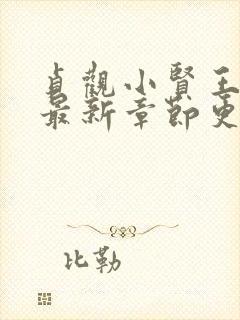 貞觀小賢王
最新章節更
比勒